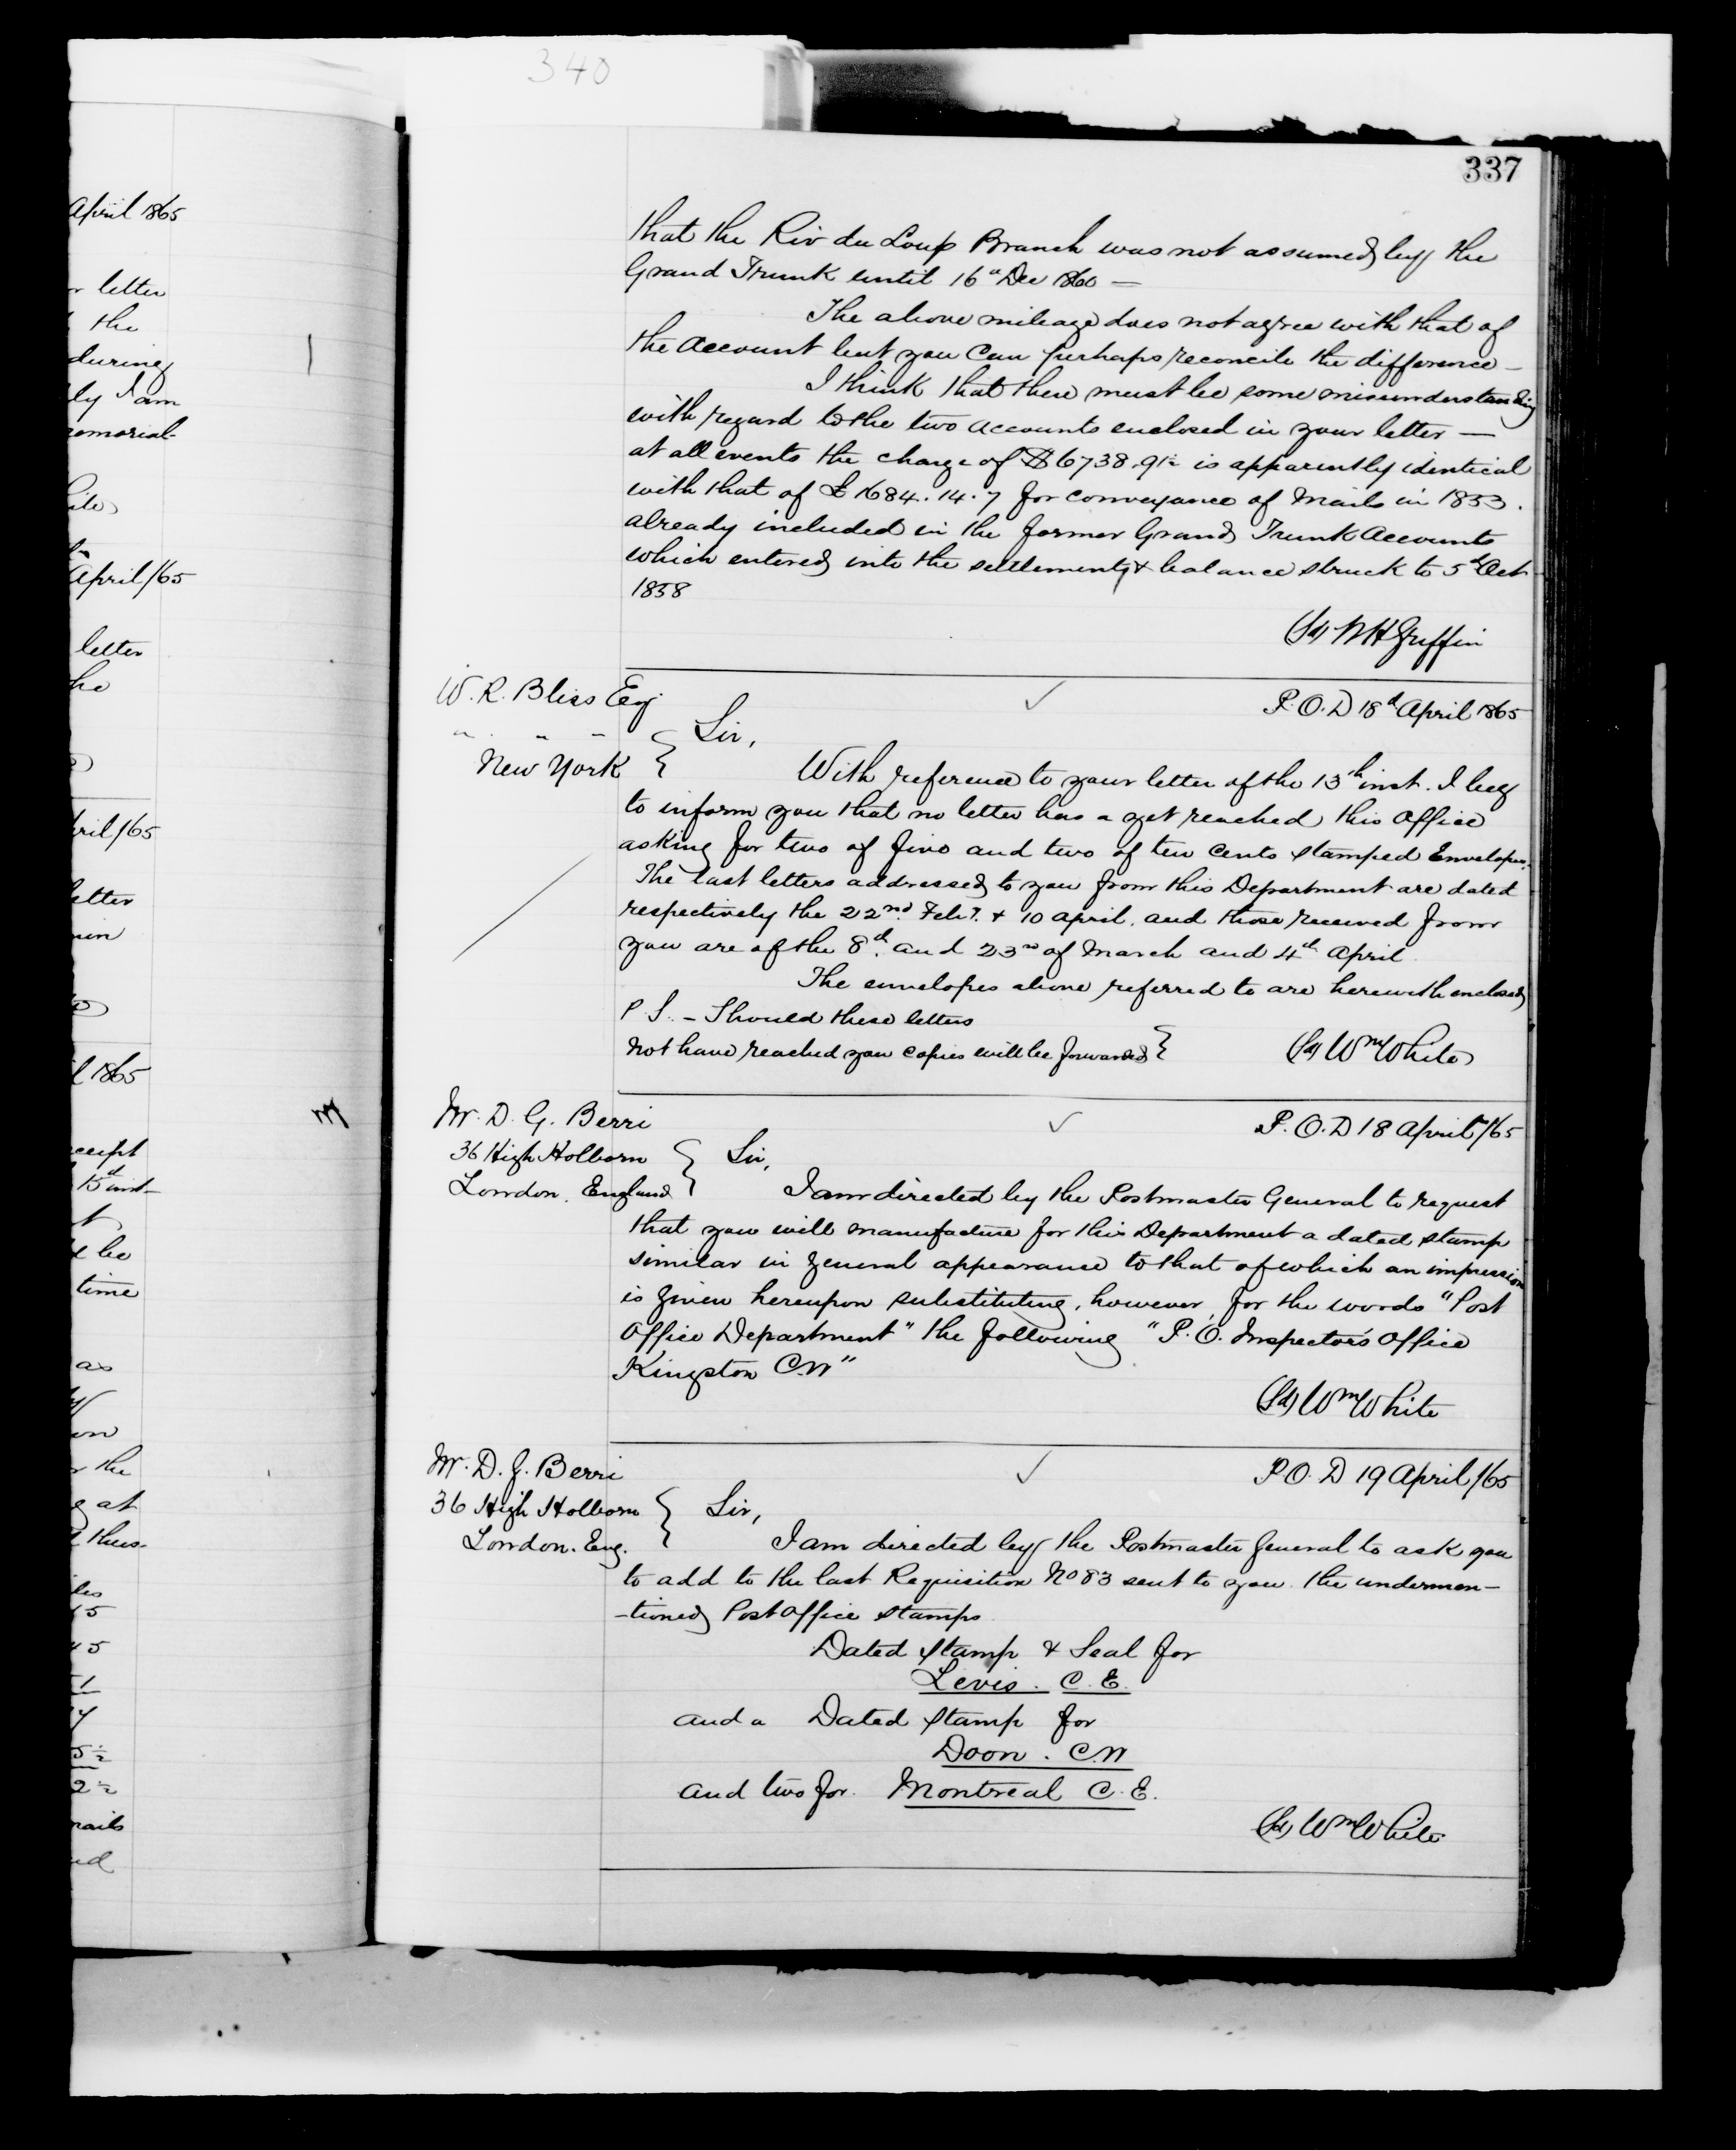 340
337
that the Riv du Loup Branch was not assumed by the
Grand Trunk until 16th Dec 1860 —
The above mileage does not agree with that of
the Account but you can perhaps reconcile the difference —
I think that there must be some misunderstanding
with regard to the two accounts enclosed in your letter —
at all events the charge of $6738.91½ is apparently identical
with that of £1684.14.7 for conveyance of Mails in 1853.
already included in the former Grand Trunk Accounts
which entered into the settlement & balance struck to 5th Oct
1858
(Sd) W H Griffin
W. R. Bliss Esq
P.O.D 18th April 1865
" " "
New York
Sir,
With reference to your letter of the 13th inst. I beg
to inform you that no letter has a yet reached this office
asking for two of five and two of ten cents stamped Envelopes.
The last letters addressed to you from this Department are dated
respectively the 22nd Feby. & 10 April. and those received from
you are of the 8th. and 23rd of March and 4th April
The envelopes above referred to are herewith enclosed
P.S. – Should these letters
not have reached you copies will be forwarded
(Sd) Wm White
Mr. D. G. Berri
P.O.D 18 April/65
36 High Holborn
London, England
Sir,
I am directed by the Postmaster General to request
that you will manufacture for this Department a dated stamp
similar in general appearance to that of which an impression
is given hereupon substituting, however, for the words "Post
Office Department" the following "P.O. Inspector's Office
Kingston C.W"
(Sd) Wm White
Mr. D. G. Berri
P.O.D 19 April/65
36 High Holborn
London. Eng.
Sir,
I am directed by the Postmaster General to ask you
to add to the last Requisition No 83 sent to you the undermen-
-tioned Post Office Stamps
Dated Stamp & Seal for
Levis. C.E.
and a Dated Stamp for
Doon. C.W
and two for Montreal C.E.
(Sd) Wm White
April 1865
letter
the
during
ly I am
April/65
letter
1865
time
as
the
at